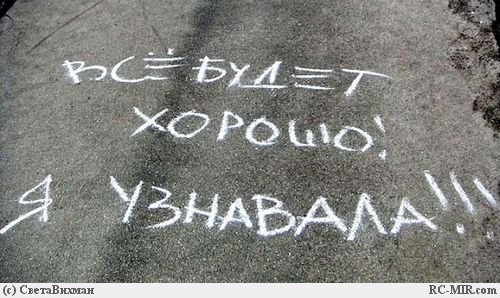 ВСЁ БУДЕТ
ХОРОШО!
Я УЗНАВАЛА!!!
(c) СветаВихман RC-MIR.com